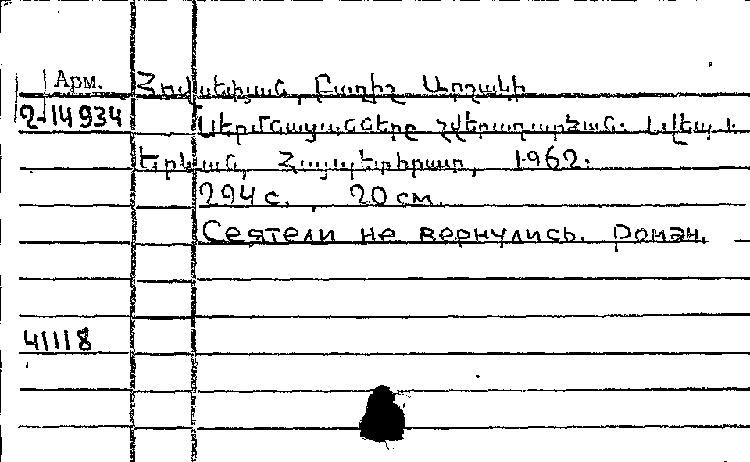 Арм. Հովսեփյան, Բաղիշ Արշակի
2-14934 Սերմնացանները չվերադարձան. Վեպ
Երևան, Հայպետհրատ, 1962.
294 с. 20 см.
Сеятели не вернулись. Роман.
41118